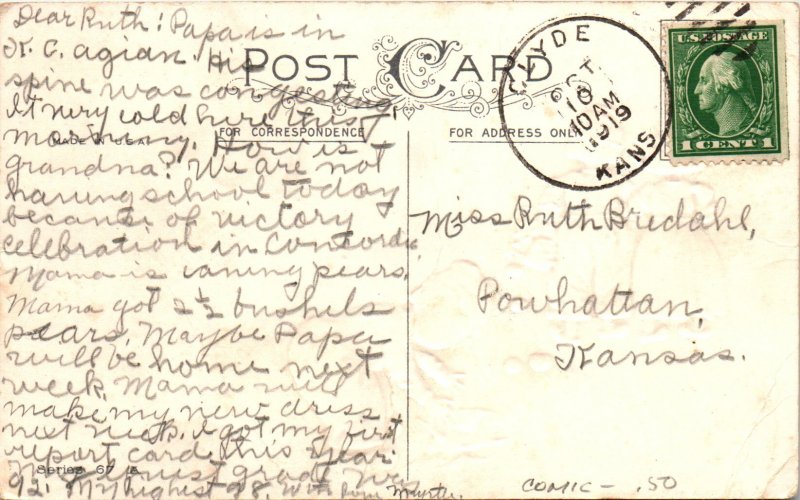 Dear Ruth: Papa is in
K. C. agian. His
spine was congesting
It very cold here this
morning. How is
grandma? We are not
having school today
because of victory
celebration in Concordia
Mama is caning pears.
Mama got 2 1/2 bushels
pears. Maybe Papa
will be home next
week. Mama will
make my new dress
next week. I got my first
report card this year.
My lowest grade was
92. My highest 98. With love Myrtle.
POST CARD
MADE IN U.S.A.
FOR CORRESPONDENCE
FOR ADDRESS ONLY
Series 67
CLYDE
OCT
10
10 AM
1919
KANS
U.S. POSTAGE
1 CENT 1
Miss Ruth Bredahl,
Powhattan,
Kansas.
COMIC - .50